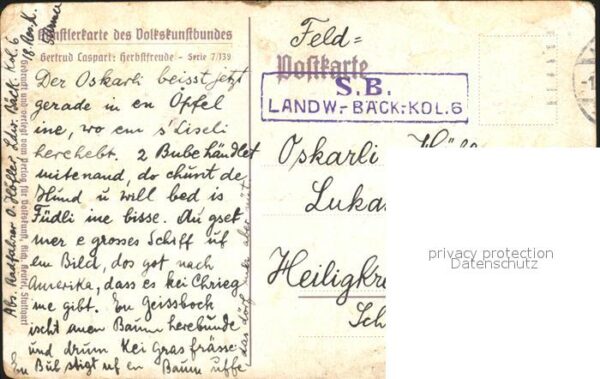 Künstlerkarte des Volkskunstbundes
Gertrud Caspari: Herbstfreude - Serie 7/139
Der Oskarli beisst jetzt
gerade in en Öpfel
ine, wo em s'Liseli
herehebt. 2 Bube händlet
mitenand, do chunt de
Hund u will bed is
Füdli ine bisse. Au gset
mer e grosses Schiff uf
em Bild, das got nach
Amerika, dass es kei Chrieg
me gibt. En Geissbock
ischt anen Baum herebunde
und drum kei Gras frässe.
En Bub stigt uf en Baum uffe
das dörf mer aber nüt
Abs. Radfahrer O. Höfler, Ldw. Bäck. Kol. 6
18. Nov. K.
Gedruckt und verlegt vom Verlag für Volkskunst, Rich. Keutel, Stuttgart
Feld=
Postkarte
S.B.
LANDW.-BÄCK.-KOL.6
Oskarli
Lukas
Heiligkre
Sch
privacy protection
Datenschutz